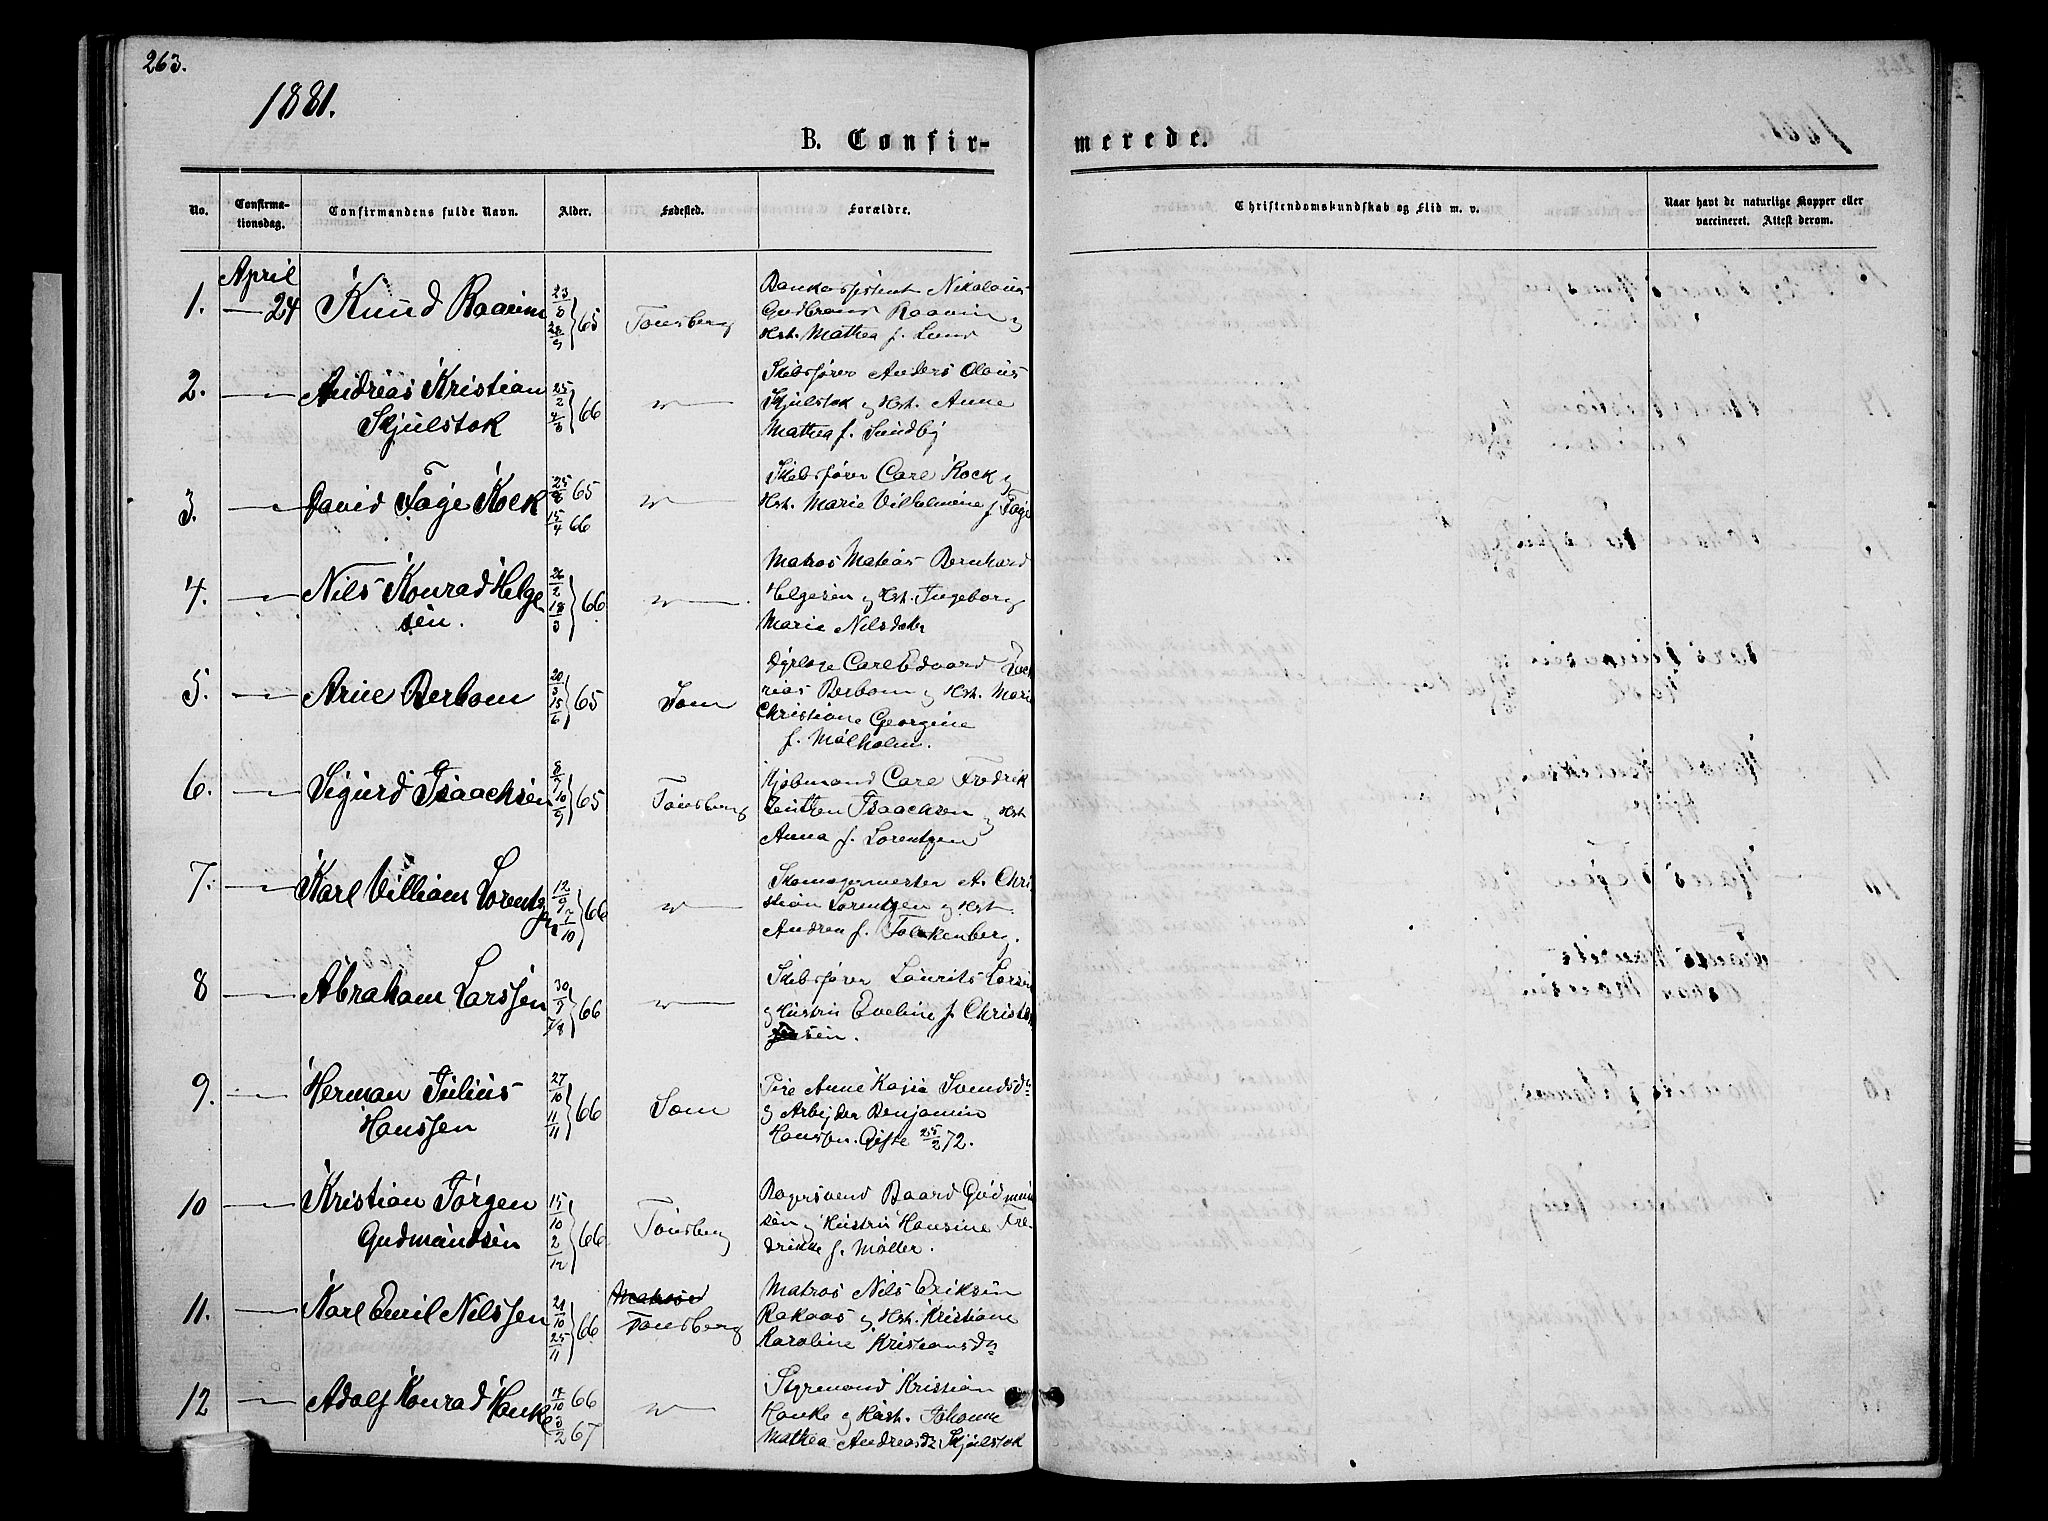 263.
1881.
B. Confir-
merede.
No.
Confirma-
tionsdag.
Confirmandens fulde Navn.
Alder.
Fødested.
Forældre.
Christendomskundskab og Flid m. v.
Naar havt de naturlige Kopper eller
vaccineret. Attest derom.
April
1. — 24 Knud Raaum 65 Tønsberg
Nikolaus
Gudbrand Raaum og
Hst. Mathea f. Lund
2. — Andreas Kristian
Skjulstok
25/2 66 — " —
Skibsfører Anders Olaus
Skjulstok og Hst. Anne
Mathea f. Sundby
3. — David Tage Kock 65
15/4 66 — " —
Skibsfører Carl Kock og
Hst. Marie Vilhelmine f. Tage
4. — Nils Konrad Helge
sen.
26/2 18/3 66 — " —
Matros Matias Bernhard
Helgesen og Hst. Ingeborg
Marie Nilsdatter
5. — Arne Berbom 15/6 65 Sem
Dyrlæge Carl Edvard
Berbom og Hst. Marie
Christiane Georgine
f. Mølholm.
6. — Sigurd Isaachsen 10/9 65 Tønsberg
Kjøbmand Carl Fredrik
Isaachsen og Hst.
Anna f. Lorentzen
7. — Karl Villiam Lorent
zen
12/9 7/10 66 — " —
Skomagermester A. Chri
stian Lorentzen og Hst.
Andrea f. Falkenberg.
8 — Abraham Larssen 66 — " —
Skibsfører Laurits Larsen
og Hustru Eveline f. Christen
sen.
9. — Herman Julius
Hanssen
27/10 11/11 66 Sem
Pige Anne Kajsa Svendsdr
og Arbejder Benjamin
Hanssen. Gifte 25/2 72.
10 — Kristian Jørgen
Gudmundsen
15/10 2/12 66 Tønsberg
Bagersvend Baard Gudmund
sen og Hustru Hansine Fre-
drikke f. Møller.
11. — Karl Emil Nilssen 21/10 25/11 66 Matros
Tønsberg
Matros Nils Eriksen
Rakaas og Hst. Kristiane
Karoline Kristiansdr
12 — Adolf Konrad Hanke 18/10 66
3/2 67 — " —
Styrmand Kristian
Hanke og Hust. Johanne
Mathea Andreasdr Skjulstok